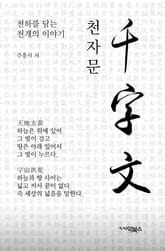 천하를 담는
천개의 이야기
천자문
주흥사 저
千字文
天地玄黃
하늘은 위에 있어
그 빛이 검고
땅은 아래 있어서
그 빛이 누르다.
宇宙洪荒
하늘과 땅 사이는
넓고 커서 끝이 없다.
즉 세상의 넓음을 말한다.